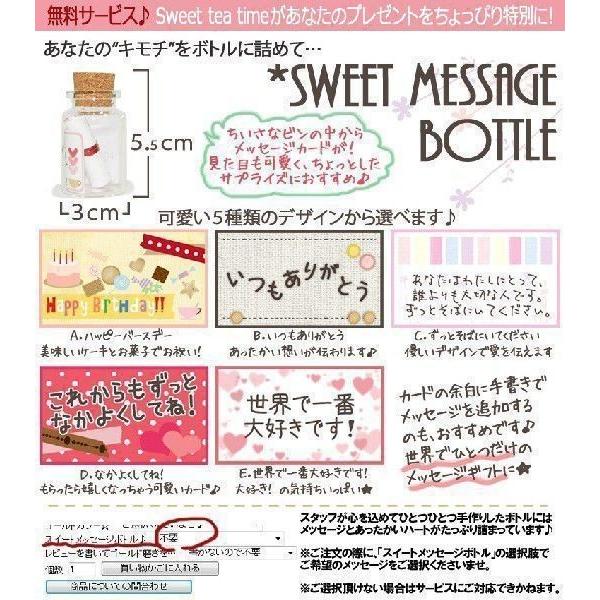 無料サービス♪ Sweet tea timeがあなたのプレゼントをちょっぴり特別に!
あなたの“キモチ”をボトルに詰めて…
*SWEET MESSAGE
BOTTLE
5.5cm
3cm
ちいさなビンの中から
メッセージカードが!
見た目も可愛く、ちょっとした
サプライズにおすすめ♪
可愛い5種類のデザインから選べます♪
Happy Birthday!!
A.ハッピーバースデー
美味しいケーキとお菓子でお祝い!
いつもありがとう
B.いつもありがとう
あったかい想いが伝わります♪
あなたはわたしにとって、
誰よりも大切な人です。
ずっとそばにいてください。
C.ずっとそばにいてください
優しいデザインで愛を伝えます
これからもずっと
なかよくしてね!
D.なかよくしてね!
もらったら嬉しくなっちゃう可愛いカード♪
世界で一番
大好きです!
E.世界で一番大好きです!
大好き!の気持ちいっぱい★
カードの余白に手書きで
メッセージを追加する
のも、おすすめです♪
世界でひとつだけの
メッセージギフトに★
スイートメッセージボトル
不要
レビューを書いてゴールド磨きを
書かないので不要
個数 1 買い物かごに入れる
商品についての問合わせ
スタッフが心を込めてひとつひとつ手作りしたボトルには
メッセージとあったかいハートがたっぷり詰まっています♪
※ご注文の際に、「スイートメッセージボトル」の選択肢で
ご希望のメッセージをご選択くださいませ。
※ご選択頂けない場合はサービスにご対応できかねます。